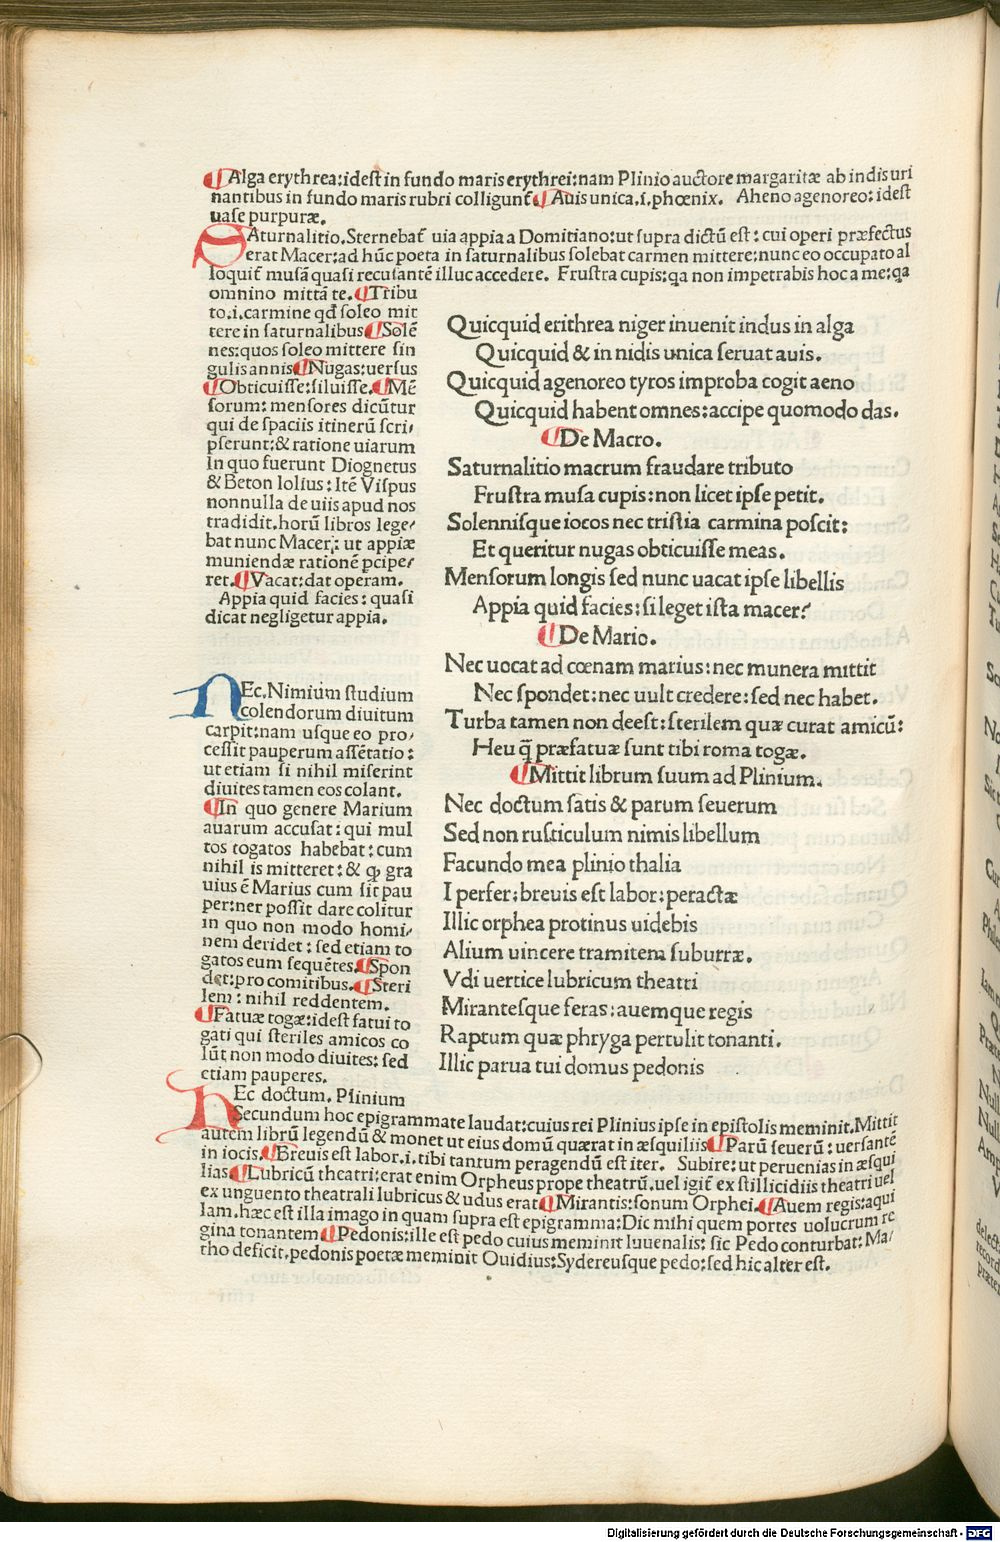 ¶Alga erythrea:idest in fundo maris erythrei:nam Plinio auctore margaritæ ab indis uri
nantibus in fundo maris rubri colligunt̃.¶Auis unica.s.phœnix. Aheno agenoreo:idest
uase purpuræ.
SAturnalitio.Sternebat̃ uia appia a Domitiano:ut supra dictū est:cui operi præfectus
erat Macer:ad hūc poeta in saturnalibus solebat carmen mittere:nunc eo occupato al
loquit̃ musā quasi recusantē illuc accedere. Frustra cupis:qa non impetrabis hoc a me:qa
omnino mittā te.¶Tribu
to.i.carmine qd̃ soleo mit
tere in saturnalibus¶Solē
nes:quos soleo mittere sin
gulis annis¶Nugas:uersus
¶Obticuisse:siluisse.¶Mē
sorum:mensores dicūtur
qui de spaciis itinerū scri,
pserunt:& ratione uiarum
In quo fuerunt Diognetus
& Beton Iolius:Itē Vispus
nonnulla de uiis apud nos
tradidit.horū libros lege,
bat nunc Macer: ut appiæ
muniendæ rationē pcipe,
ret.¶Vacat:dat operam.
Appia quid facies: quasi
dicat negligetur appia.
Quicquid erithrea niger inuenit indus in alga
Quicquid & in nidis unica seruat auis.
Quicquid agenoreo tyros improba cogit aeno
Quicquid habent omnes:accipe quomodo das.
¶De Macro.
Saturnalitio macrum fraudare tributo
Frustra musa cupis:non licet ipse petit.
Solennisque iocos nec tristia carmina poscit:
Et queritur nugas obticuisse meas.
Mensorum longis sed nunc uacat ipse libellis
Appia quid facies:si leget ista macer?
¶De Mario.
NEc.Nimium studium
colendorum diuitum
carpit:nam usque eo pro,
cessit pauperum assētatio:
ut etiam si nihil miserint
diuites tamen eos colant.
¶In quo genere Marium
auarum accusat: qui mul
tos togatos habebat: cum
nihil is mitteret:& qꝫ gra
uius ē Marius cum sit pau
per:ner possit dare colitur
in quo non modo homi,
nem deridet: sed etiam to
gatos eum sequētes.¶Spon
det:pro comitibus.¶Steri
lem: nihil reddentem.
¶Fatuæ togæ:idest fatui to
gati qui steriles amicos co
lūt non modo diuites: sed
etiam pauperes.
Nec uocat ad cœnam marius:nec munera mittit
Nec spondet:nec uult credere:sed nec habet.
Turba tamen non deest:sterilem quæ curat amicū:
Heu q̃ præfatuæ sunt tibi roma togæ.
¶Mittit librum suum ad Plinium.
Nec doctum satis & parum seuerum
Sed non rusticulum nimis libellum
Facundo mea plinio thalia
I perfer:breuis est labor:peractæ
Illic orphea protinus uidebis
Alium uincere tramitem suburræ.
Vdi uertice lubricum theatri
Mirantesque feras:auemque regis
Raptum quæ phryga pertulit tonanti.
Illic parua tui domus pedonis
NEc doctum. Plinium
Secundum hoc epigrammate laudat:cuius rei Plinius ipse in epistolis meminit.Mittit
autem librū legendū & monet ut eius domū quærat in æsquiliis¶Parū seuerū: uersantē
in iocis.¶Breuis est labor.i.tibi tantum peragendū est iter. Subire:ut peruenias in æsqui
lias.¶Lubricū theatri:erat enim Orpheus prope theatrū.uel igit̃ ex stillicidiis theatri uel
ex unguento theatrali lubricus & udus erat¶Mirantis:sonum Orphei.¶Auem regis:aqui
lam.hæc est illa imago in quam supra est epigramma:Dic mihi quem portes uolucrum re
gina tonantem¶Pedonis:ille est pedo cuius meminit Iuuenalis: sic Pedo conturbat: Ma,
tho deficit.pedonis poetæ meminit Ouidius:Sydereusque pedo:sed hic alter est.
Digitalisierung gefördert durch die Deutsche Forschungsgemeinschaft - DFG